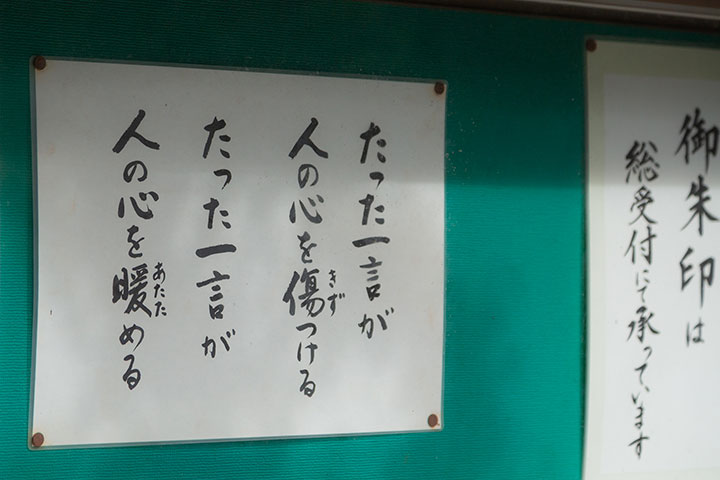 たった一言が
人の心を傷つける
たった一言が
人の心を暖める
きず
あたた
御朱印は
総受付にて承っています